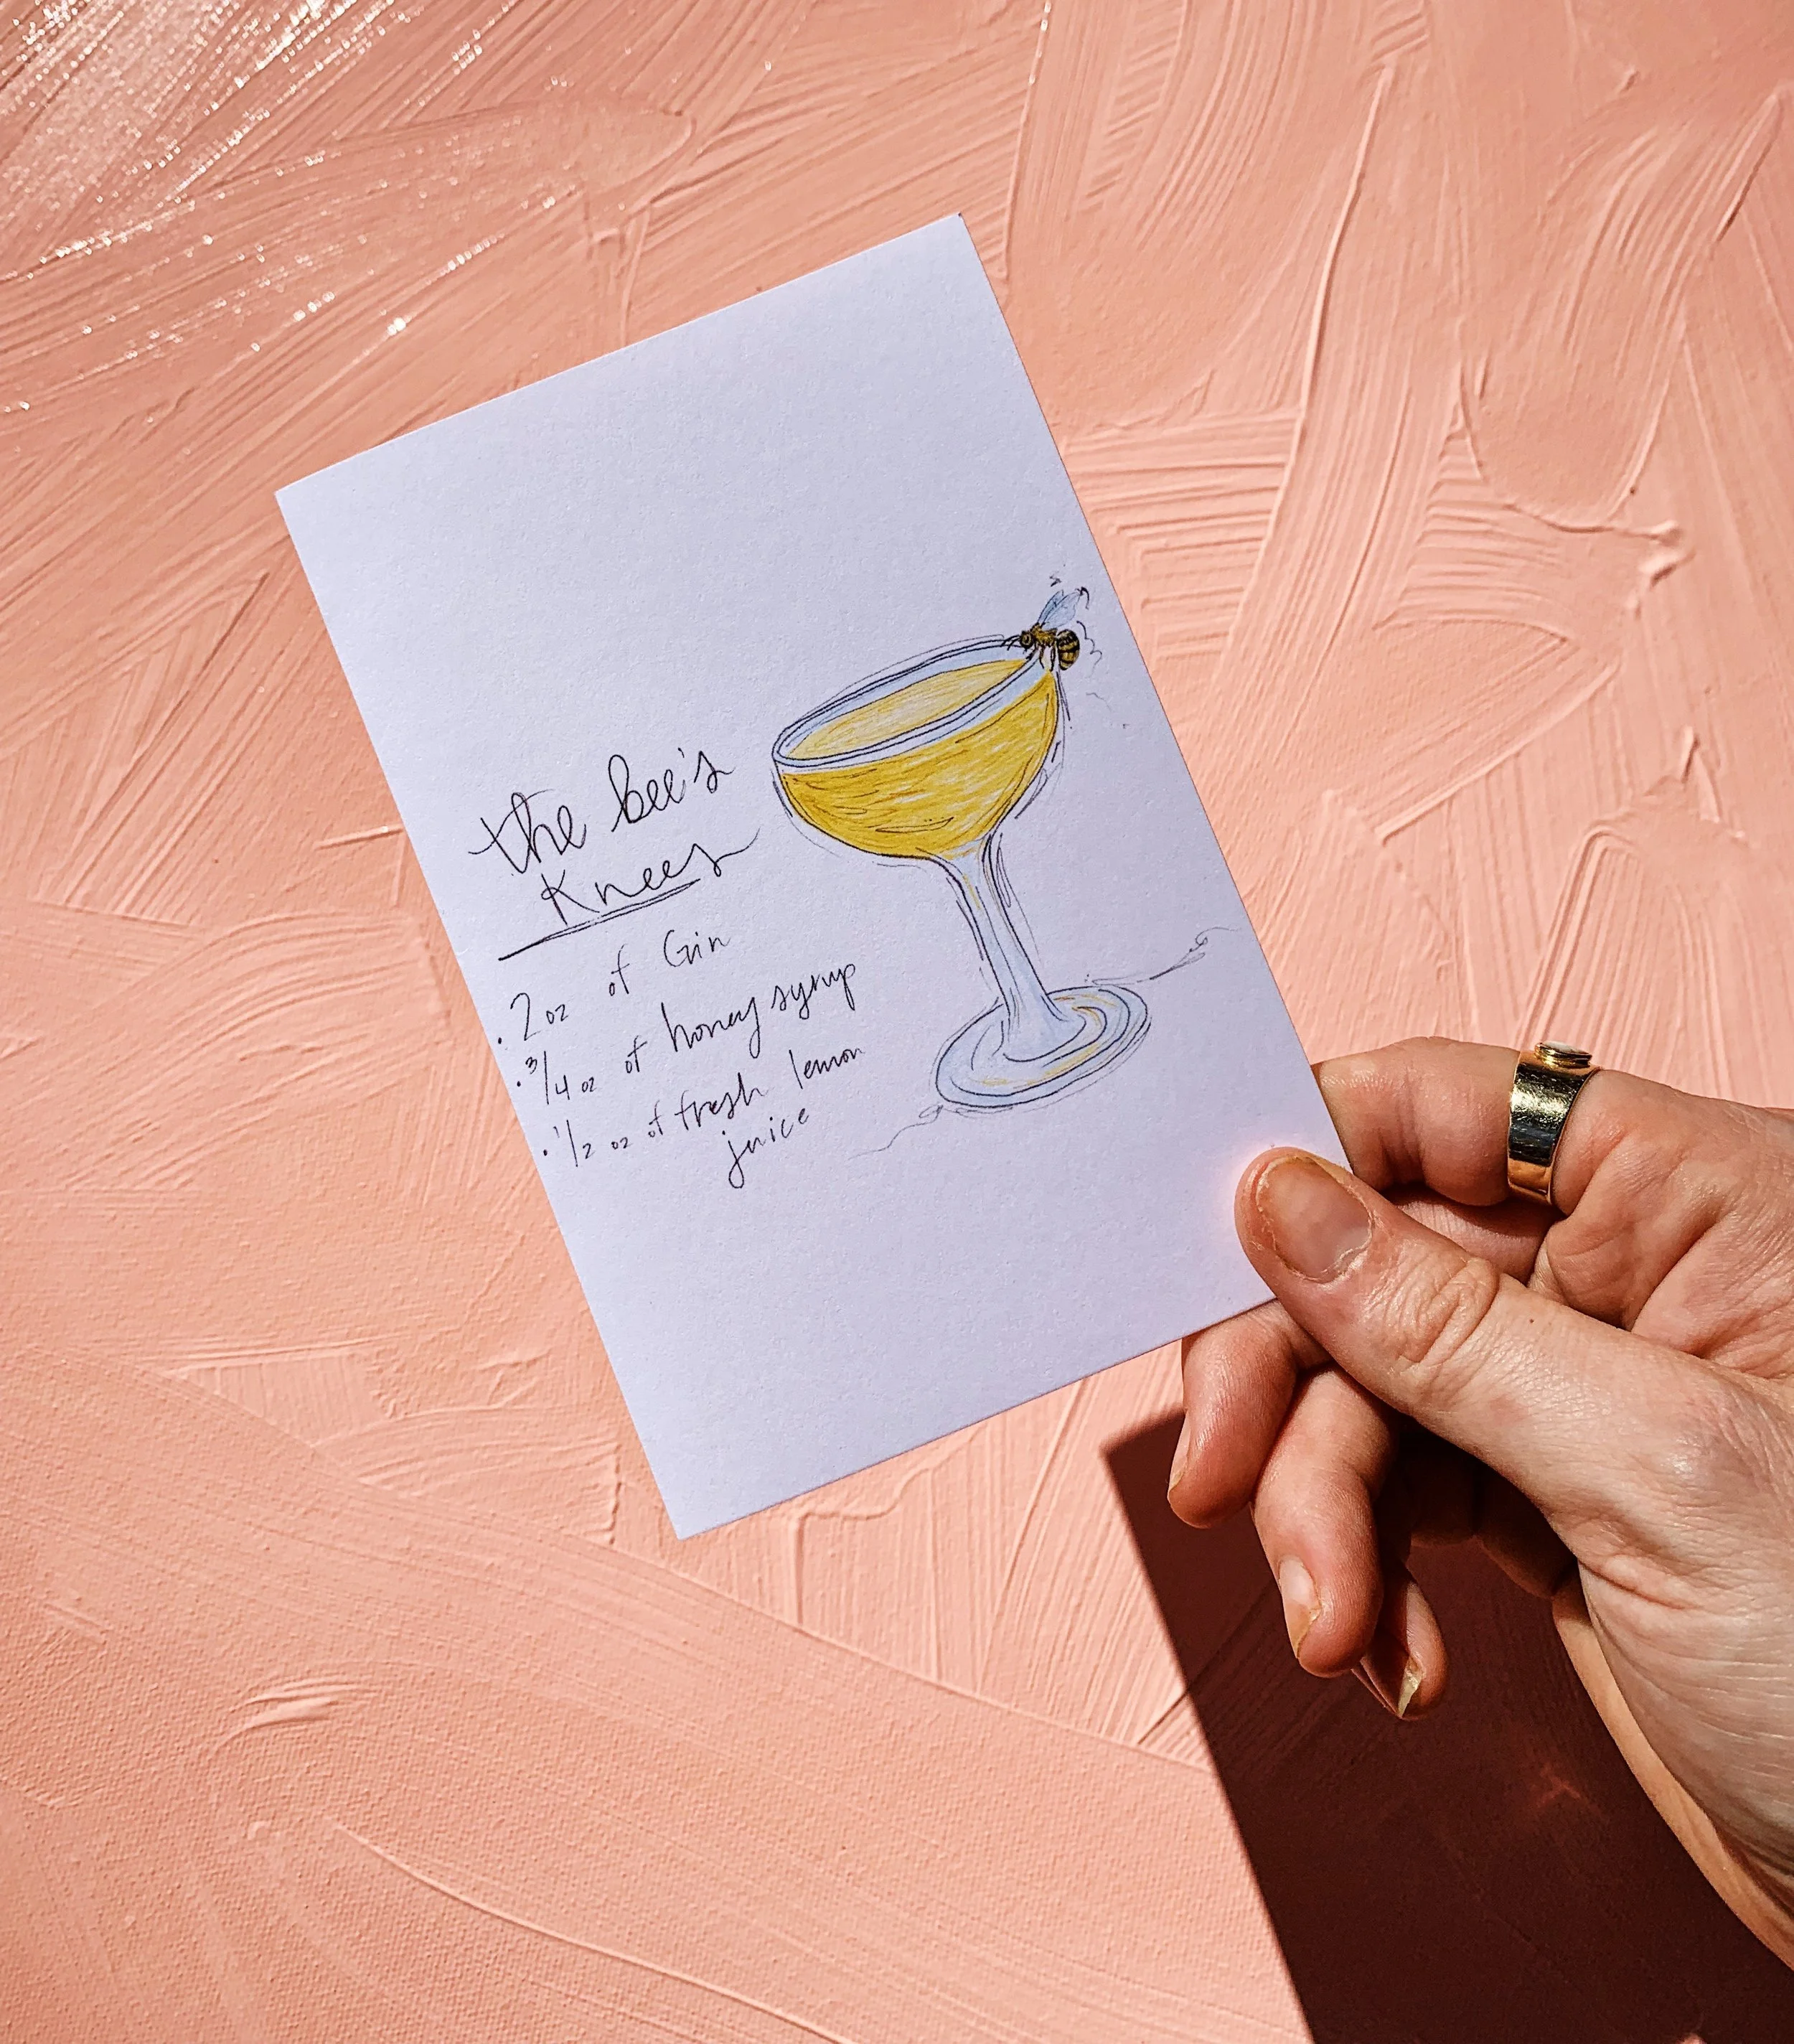 the bee's
Knees
· 2 oz of Gin
· 3/4 oz of honey syrup
· 1/2 oz of fresh lemon
juice